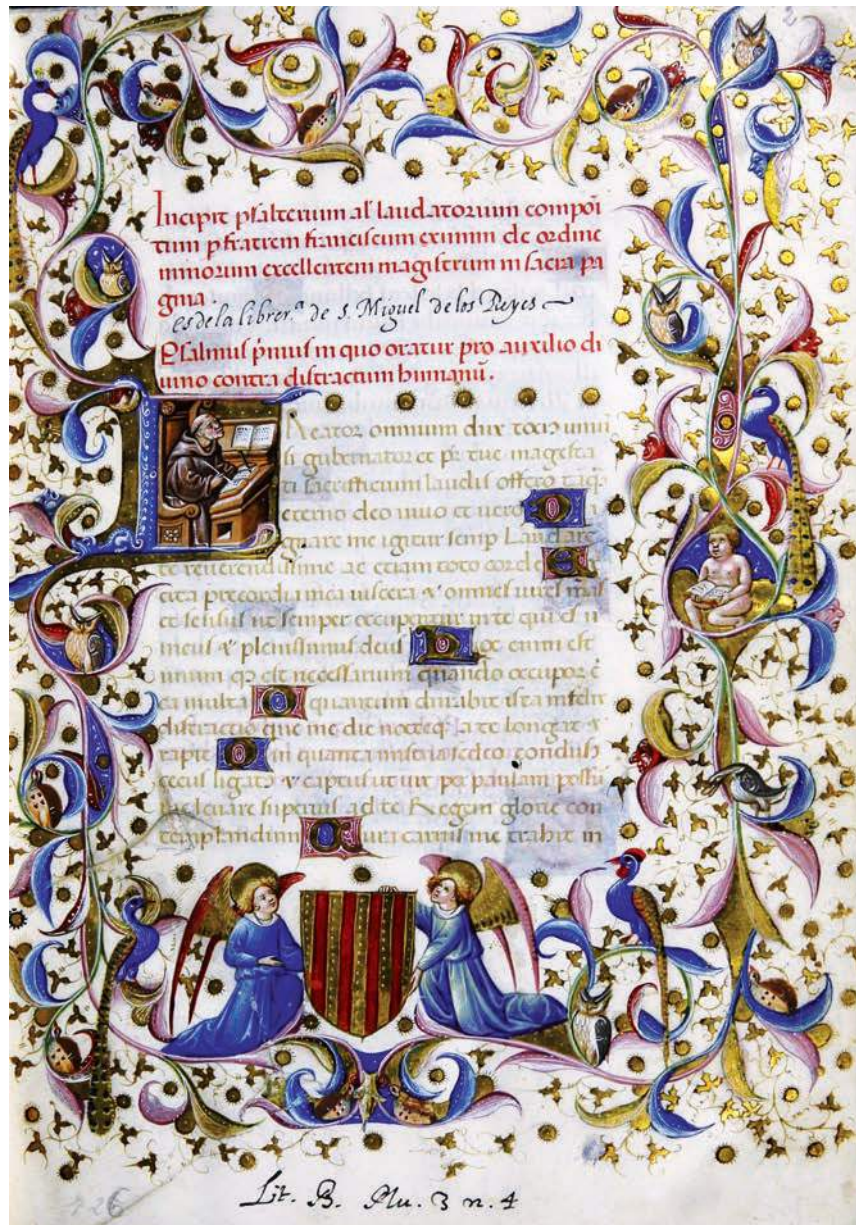 2
Incipit psalterium al' laudatorium compoi
tum p fratrem franciscum eximin de ordine
minorum excellentem magistrum in sacra pa
gina.
es de la librer.ª de S. Miguel de los Reyes
Psalmus p̄mus in quo oratur pro auxilio di
uino contra distractum humanū.
Creator omnium dux
si gubernator et p̄r tue magesta
ti sacrificium laudis offero
eterno deo uiuo et uero
me igitur semp Laudare
te reuerendissime ac etiam toto corde
precordia mea uiscera & omnes uires meas
et sensus ut semper occupentur in te qui es u
nicus & plenissimus deus hoc enim est
unum qd est necessarium quando occupor
multa O quantum durabit ista
distractio que me die nocteq a te longat &
rapit O in quanta miseria sedeo
secus ligatus & captus ut uix per paululum
me leuare superius ad te Regem glorie con
templandum Cura carnis me trahit in
126
Lit. B. Plu. 3 n. 4